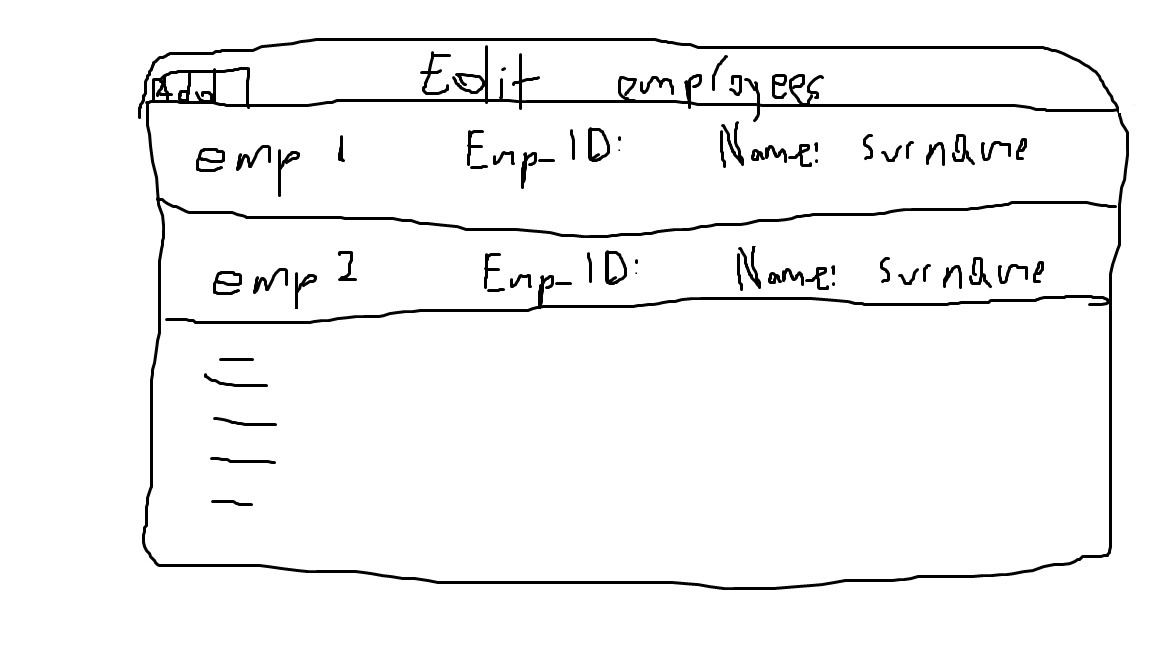 Add Edit employees
emp 1 Emp_ID: Name: surname
emp 2 Emp_ID: Name: surname